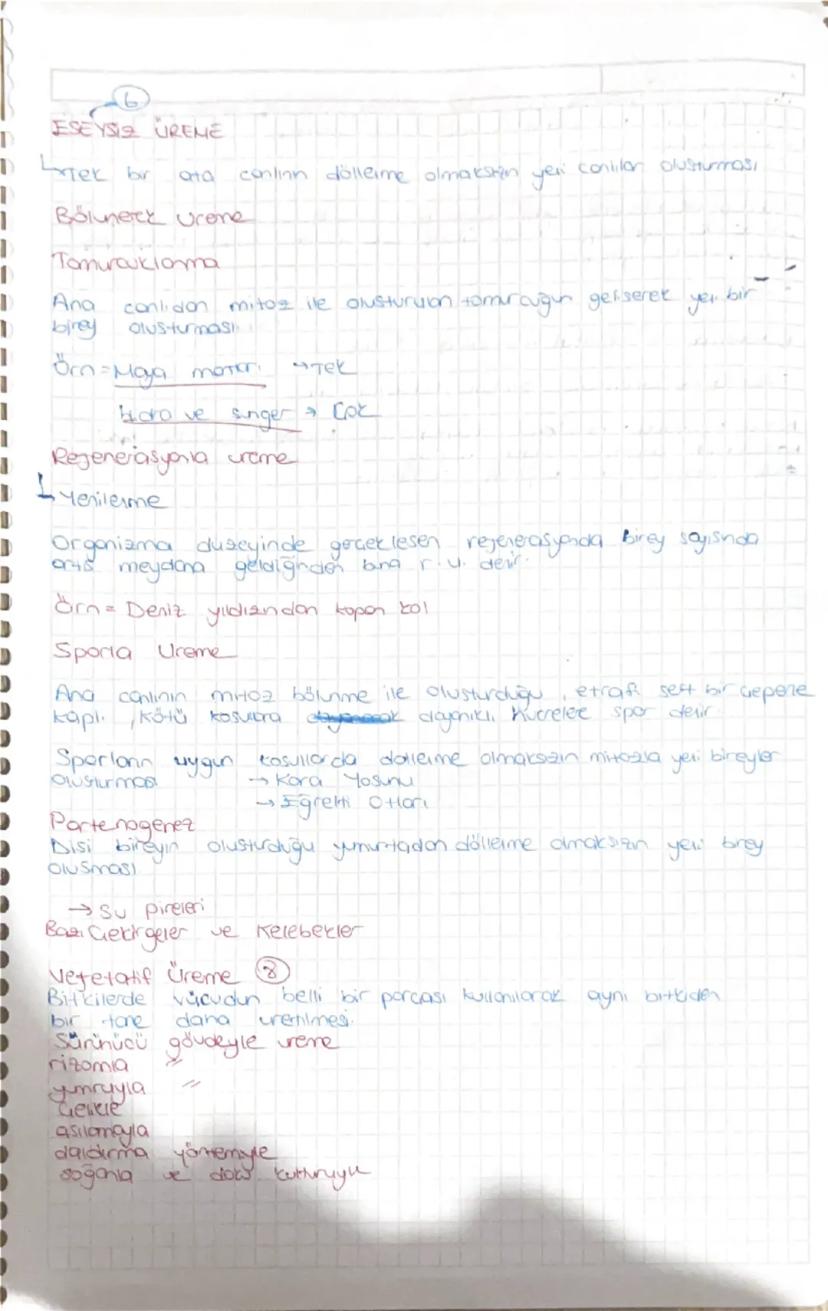 6
EŞEYSİZ ÜREME
↳ Tek bir ata canlının dölleme olmaksızın yeni canlılar oluşturması
Bölünerek Üreme
Tomurcuklanma
Ana canlıdan mitoz ile oluşturulan tomurcuğun gelişerek yeni bir
birey oluşturması
Örn = Maya mantarı → Tek
Hidra ve sünger → Çok
Rejenerasyonla üreme
↳ Yenilenme
Organizma düzeyinde gerçekleşen rejenerasyonda birey sayısında
artış meydana geldiğinden buna r. ü. denir.
Örn = Deniz yıldızından kopan kol
Sporla Üreme
Ana canlının mitoz bölünme ile oluşturduğu, etrafı sert bir çeperle
kaplı, kötü koşullara dayanıklı hücrelere spor denir
Sporların uygun koşullarda dölleme olmaksızın mitozla yeni bireyler
oluşturması → Kara Yosunu
→ Eğrelti Otları
Partenogenez
Dişi bireyin oluşturduğu yumurtadan dölleme olmaksızın yeni birey
oluşması
→ Su pireleri
Bazı Çekirgeler ve Kelebekler
Vejetatif Üreme 8
Bitkilerde vücudun belli bir parçası kullanılarak aynı bitkiden
bir tane daha üretilmesi
Sürünücü gövdeyle üreme
rizomla "
yumruyla "
Çelikle
aşılamayla
daldırma yöntemiyle
soğanla ve doku kültürüyle